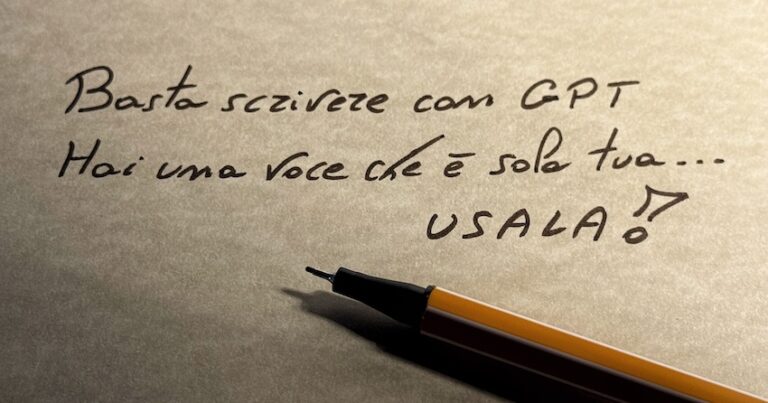 Basta scrivere con GPT
Hai una voce che è solo tua...
USALA!